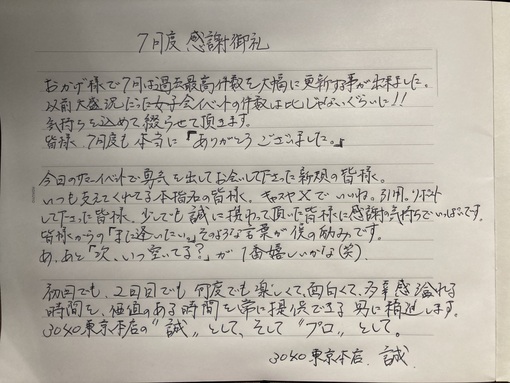 7月度 感謝御礼
おかげ様で7月は過去最高件数を大幅に更新する事が出来ました。
以前大盛況だった女子会イベントの件数は比じゃないぐらいに!!
気持ちを込めて綴らせて頂きます。
皆様、7月度も本当に「ありがとうございました。」
今回のサマーイベントで勇気を出してお会いして下さった新規の皆様。
いつも支えてくれてる本指名の皆様。キャスやXでいいね。引用、リポスト
して下さった皆様。少しでも誠に携わって頂いた皆様に感謝の気持ちでいっぱいです。
皆様からの「また逢いたい。」そのような言葉が僕の励みです。
あ、あと「次、いつ空いてる?」が1番嬉しいかな(笑)
初回でも、2回目でも、何度でも楽しくて、面白くて、多幸感溢れる
時間を、価値のある時間を常に提供できる男に精進します。
3040東京本店の"誠"として、そして"プロ"として。
3040東京本店 誠